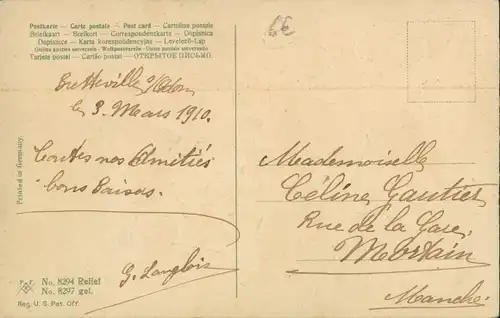 Postkarte – Carte postale – Post card – Cartolina postale
Briefkaart – Brefkort – Correspondenzkarte – Dopisnica
Dopisnice – Karta korespondencyjna – Levelező-Lap
Unione postale universale – Weltpostverein – Union postale universelle
Tarjeta postal – Cartão postal – ОТКРЫТОЕ ПИСЬМО.
Bretteville s/Odon
le 3 Mars 1910.
Toutes nos Amitiés
bons baisers.
G. Langlois
Mademoiselle
Céline Gautier
Rue de la Gare,
Mortain
Manche.
Printed in Germany.
No. 8294 Relief
No. 8297 gel.
Reg. U. S. Pat. Off.